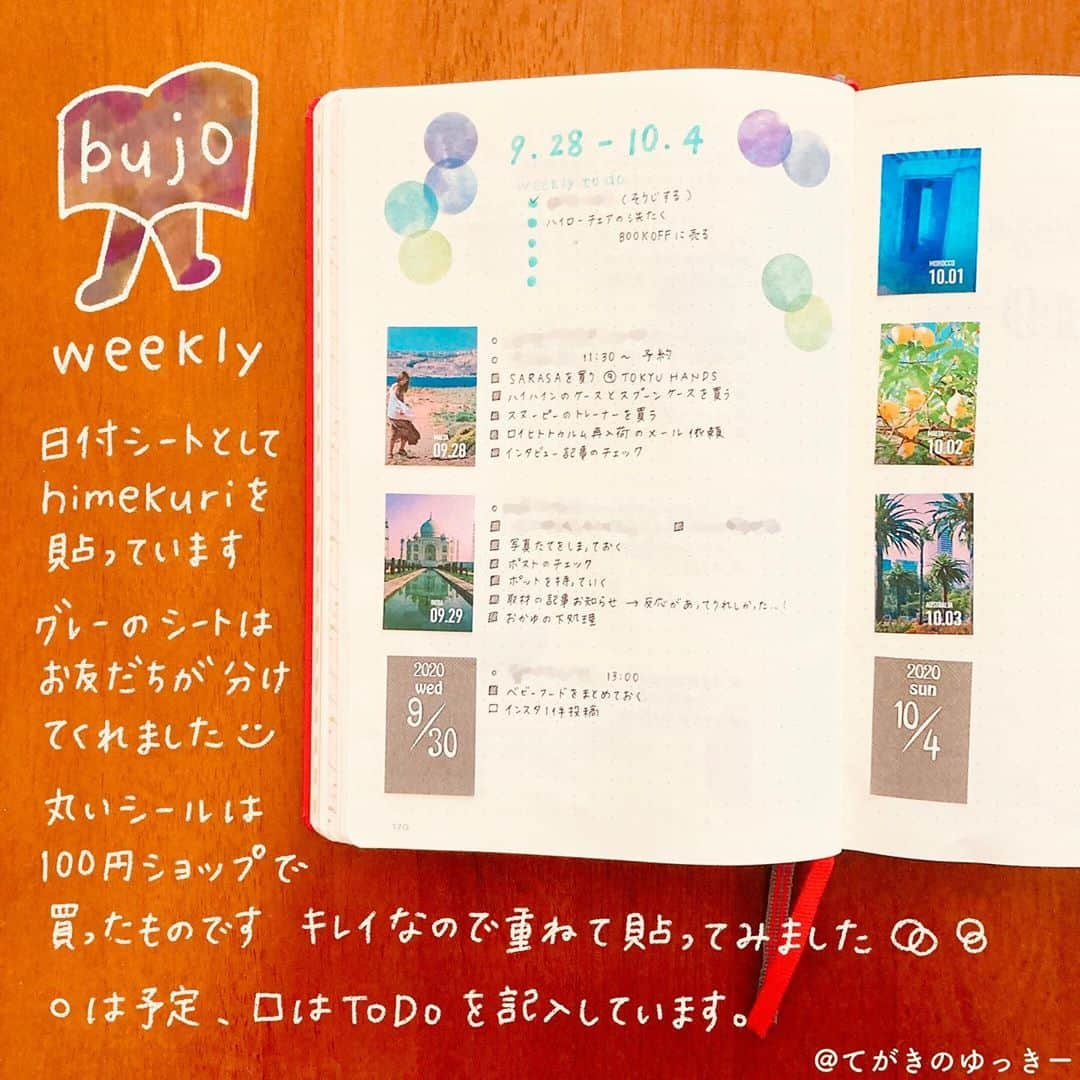 bujo
weekly
日付シートとして
himekuriを
貼っています
グレーのシートは
お友だちが分け
てくれました
丸いシールは
100円ショップで
買ったものです キレイなので重ねて貼ってみました
○は予定、□はToDoを記入しています。
@てがきのゆっきー
9.28 - 10.4
weekly to do
(そうじする)
ハイローチェアの洗たく
BOOKOFFに売る
MALTA
09.28
11:30〜 予約
SARASAを買う @ TOKYU HANDS
ハイハインのケースとスプーンケースを買う
スヌーピーのトレーナーを買う
ロイヒトトゥルム再入荷のメール依頼
インタビュー記事のチェック
INDIA
09.29
写真たてをしまっておく
ポストのチェック
ポットを持っていく
取材の記事お知らせ → 反応があってうれしかった…!
おかゆの下処理
2020
wed
9/30
13:00
ベビーフードをまとめておく
インスタ1件投稿
170
MOROCCO
10.01
MALTA
10.02
AUSTRALIA
10.03
2020
sun
10/4